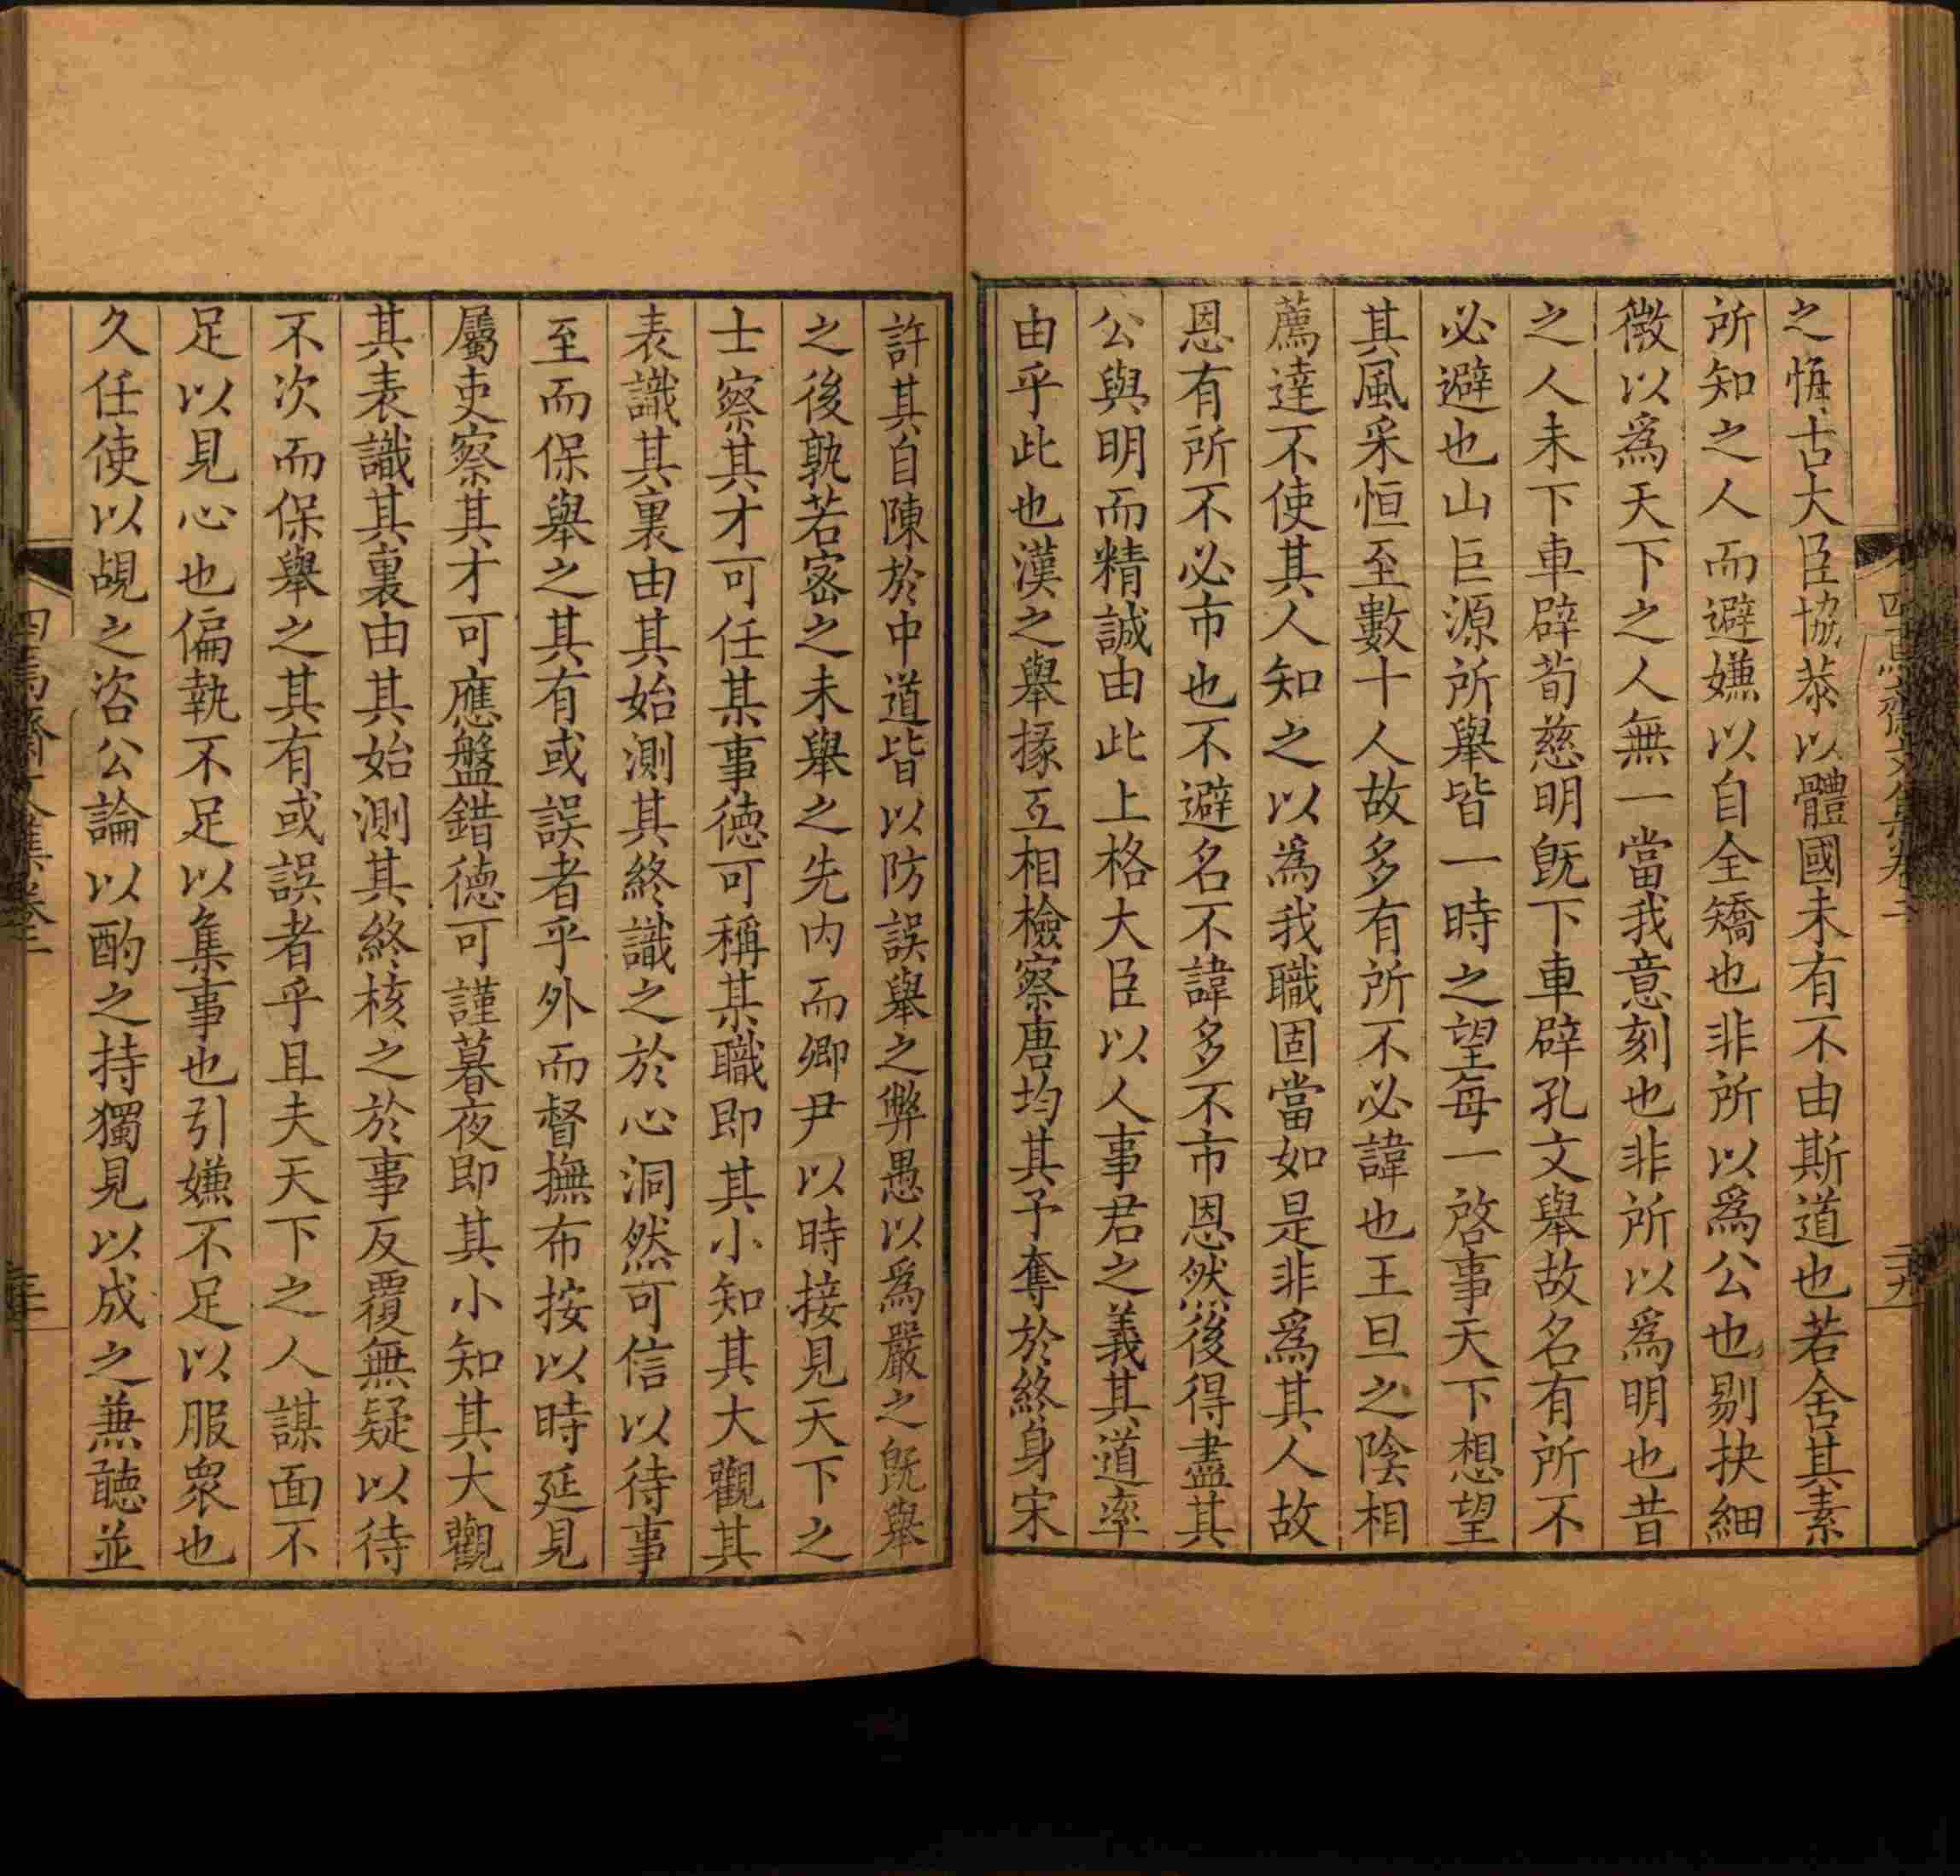 之悔古大臣協恭以體國未有不由斯道也若舍其素
所知之人而避嫌以自全矯也非所以爲公也剔抉細
微以爲天下之人無一當我意刻也非所以爲明也昔
之人未下車辟荀慈明旣下車辟孔文舉故名有所不
必避也山巨源所舉皆一時之望每一啓事天下想望
其風采恒至數十人故多有所不必諱也王旦之陰相
薦達不使其人知之以爲我職固當如是非爲其人故
恩有所不必市也不避名不諱多不市恩然後得盡其
公與明而精誠由此上格大臣以人事君之義其道率
由乎此也漢之舉掾互相檢察唐均其予奪於終身宋
許其自陳於中道皆以防誤舉之弊愚以爲嚴之旣舉
之後孰若密之未舉之先内而卿尹以時接見天下之
士察其才可任某事德可稱某職即其小知其大觀其
表識其裏由其始測其終識之於心洞然可信以待事
至而保舉之其有或誤者乎外而督撫布按以時延見
屬吏察其才可應盤錯德可謹暮夜即其小知其大觀
其表識其裏由其始測其終核之於事反覆無疑以待
不次而保舉之其有或誤者乎且夫天下之人謀面不
足以見心也偏執不足以集事也引嫌不足以服衆也
久任使以覘之咨公論以酌之持獨見以成之兼聽並